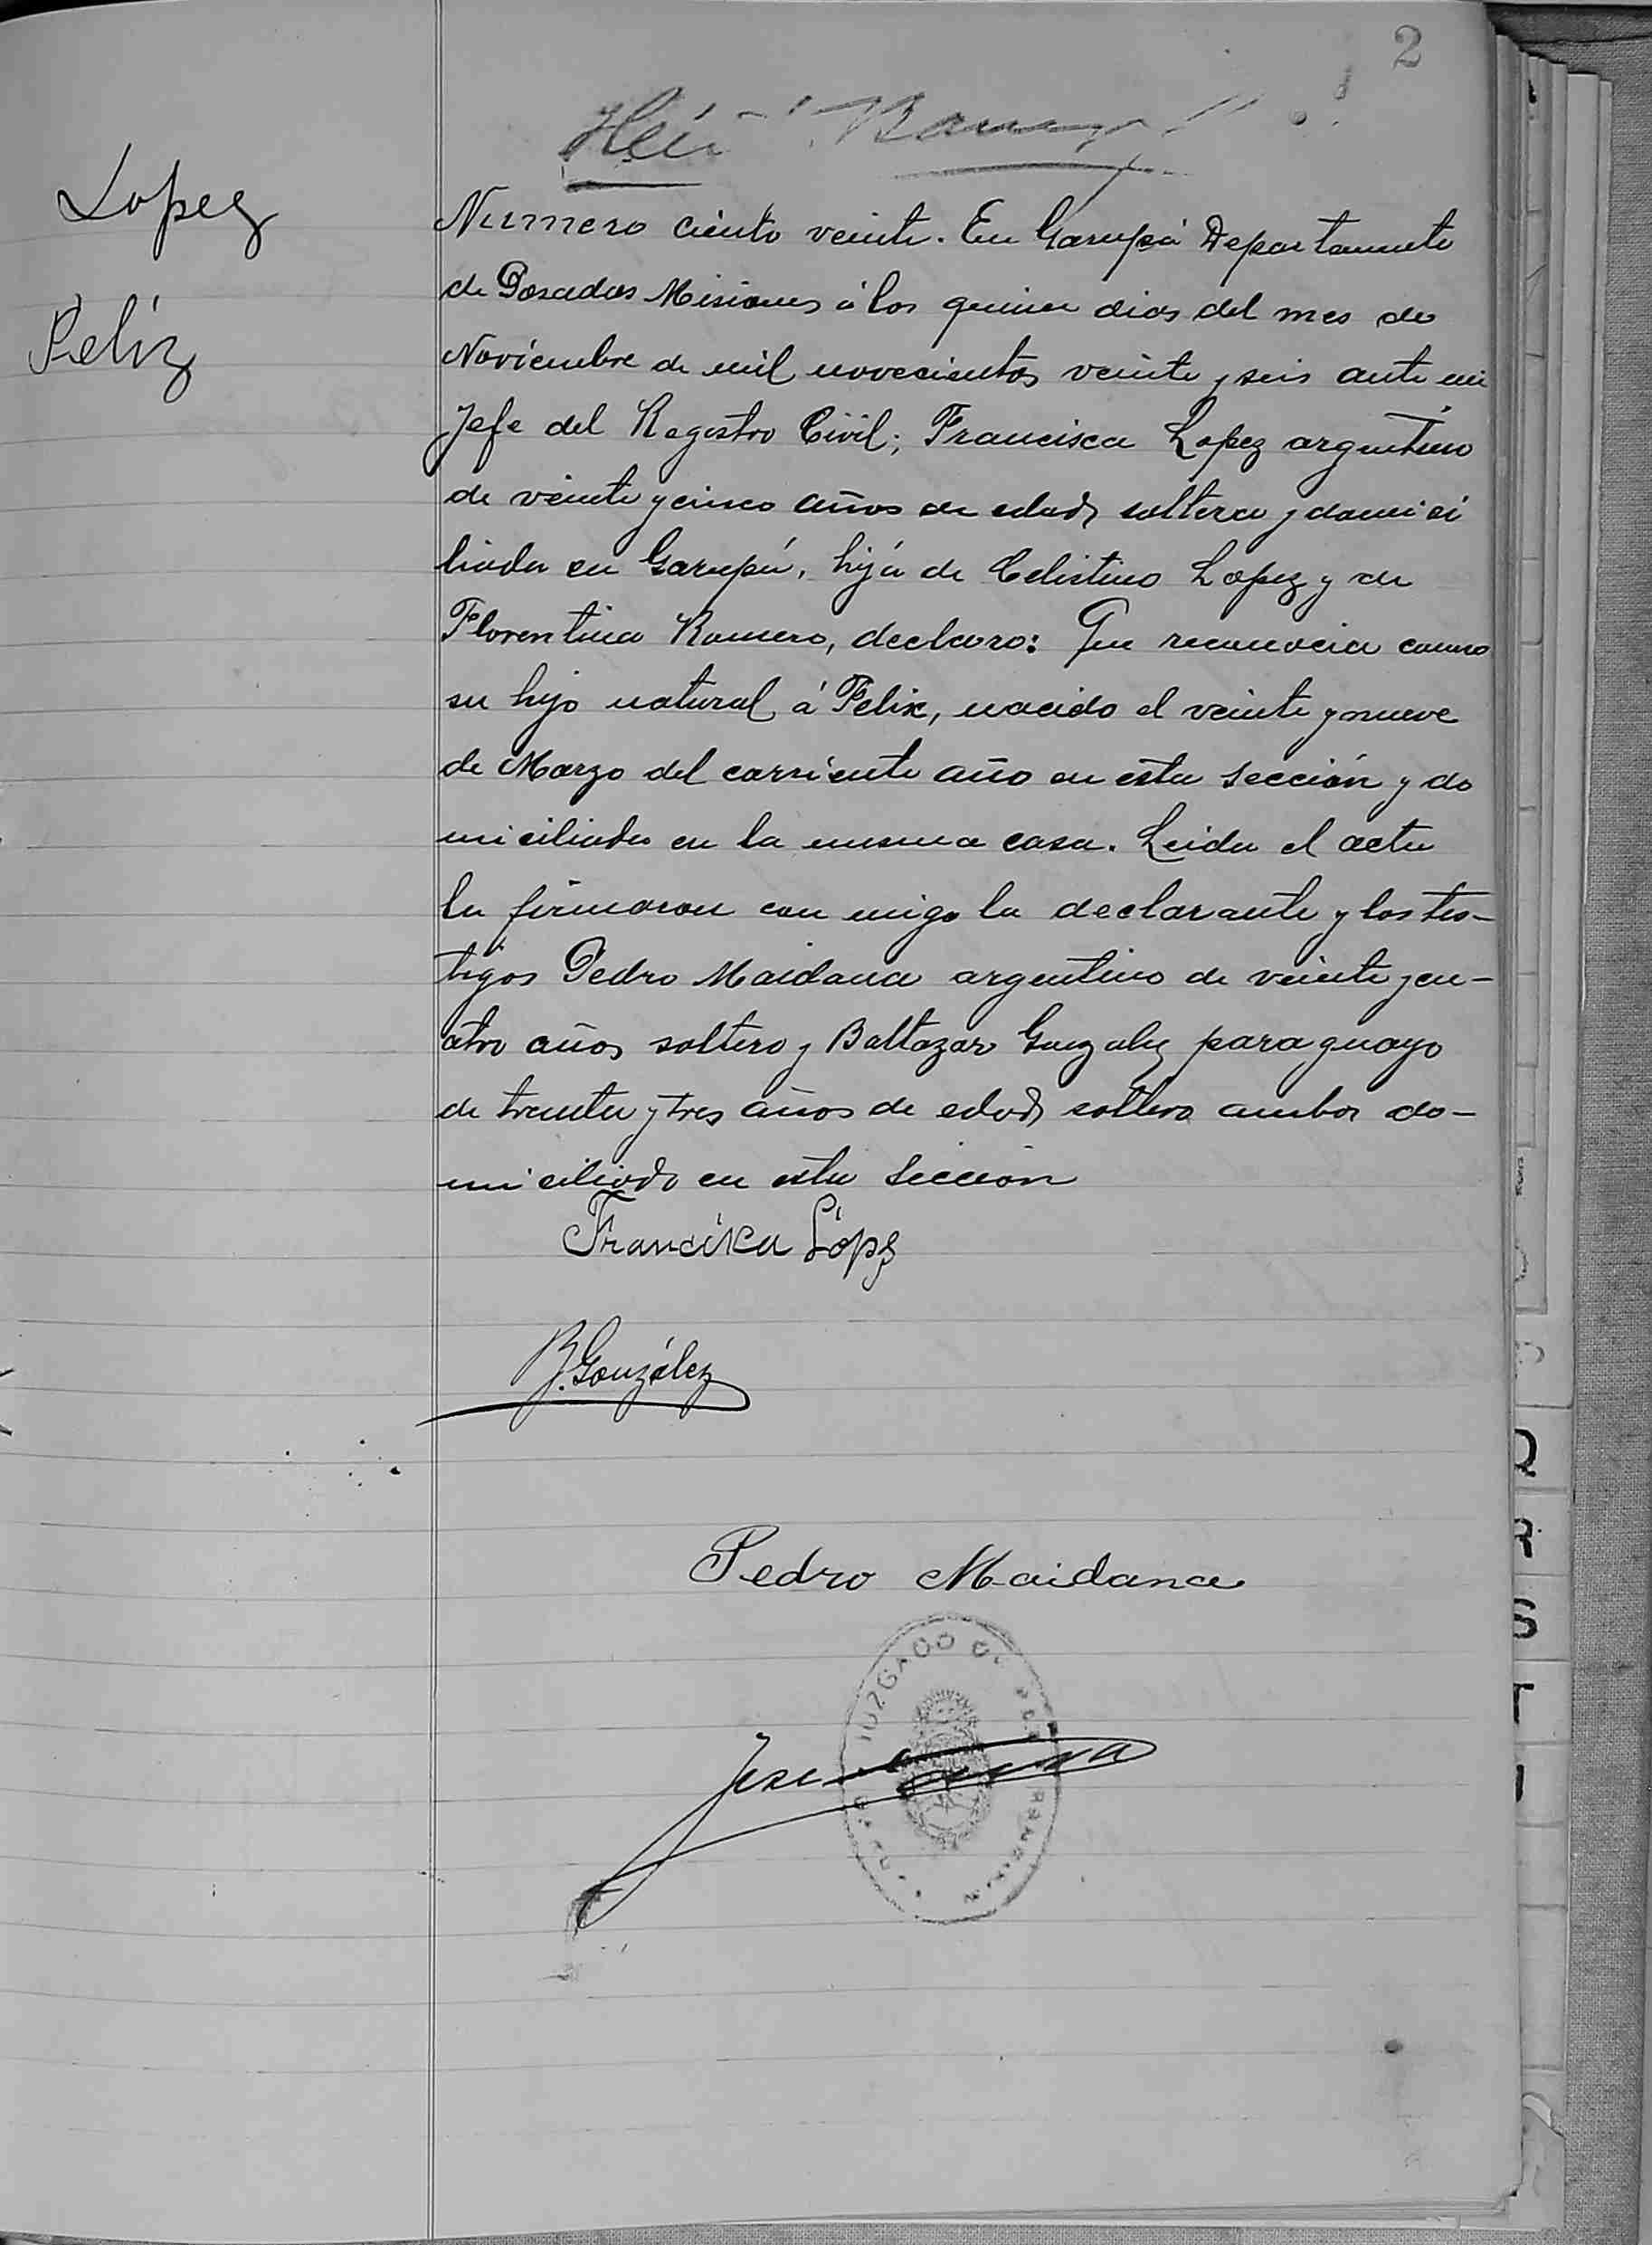 2
Lopez
Feliz
Numero ciento veinte. En Garupá Departamento
de Posadas Misiones á los quince dias del mes de
Noviembre de mil novecientos veinte y seis ante mi
Jefe del Registro Civil; Francisca Lopez argentino
de veinte y cinco años de edad, soltera y domici
liada en Garupá, hija de Celestino Lopez y de
Florentina Romero, declaro: Que reconocia como
su hijo natural á Felix, nacido el veinte y nueve
de Marzo del corriente año en esta Sección y do
miciliado en la misma casa. Leida el acta
la firmaron con migo la declarante y los tes-
tigos Pedro Maidana argentino de veinte y cu-
atro años soltero y Baltazar Gonzalez paraguayo
de treinta y tres años de edad, soltero ambos do-
miciliado en esta Sección
Francisca Lópz
B. González
Pedro Maidana
JUZGADO